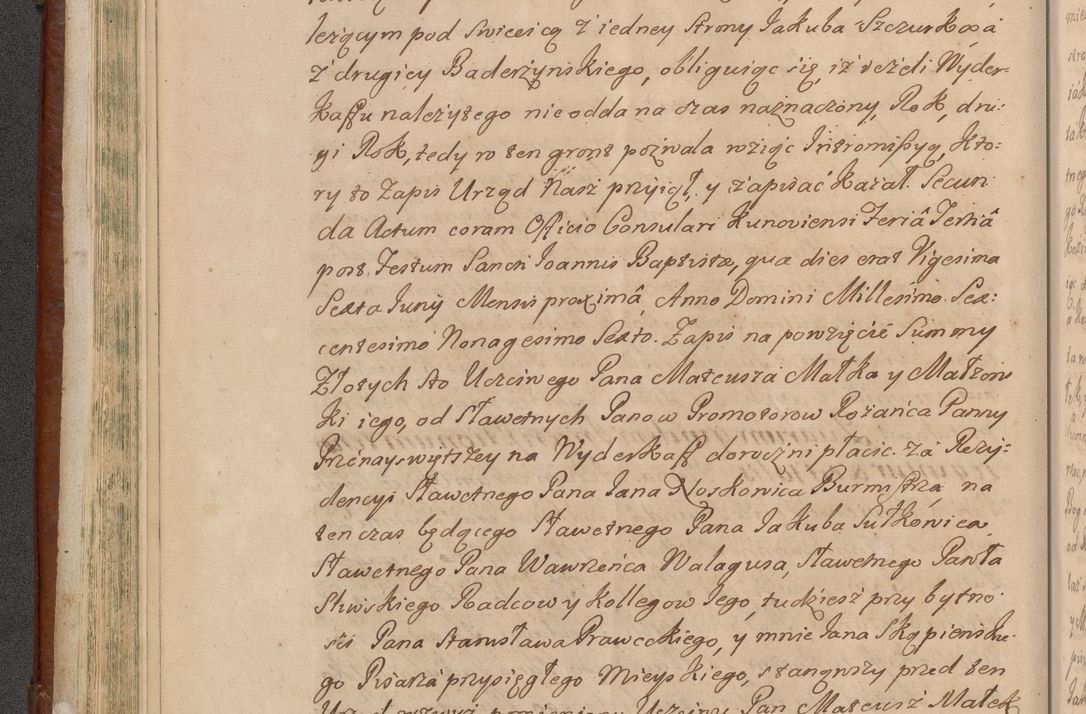 lezącym pod Swicąicą z iedney strony Jakuba Szczurka a
z drugiey Baderzynskiego, obliguiąc się, iż ieżeli Wyder-
kaffu należytego nie odda na czas naznaczony, Rok, dru-
gi Rok, tedy w ten gront pozwala wziąc Intromissyą, Kto-
ry to Zapis Urząd Nasz prziyiął, y zapisać kazał. Secun
da Actum coram Officio Consulari Kunoviensi Feriâ Tertiâ
post Festum Sancti Joannis Baptistæ, quæ dies erat Vigesima
Sexta Junij Mensis proximâ, Anno Domini Millesimo Sex:
centesimo Nonagesimo Sexto. Zapis na powzięcie Summy
Złotych sto Uczciwego Pana Mateusza Małka y Małzon
ki iego, od Sławetnych Panow Promotorow Rożańca Panny
Przenayswiętszey na Wyderkaff doroczni płacic. Za Rezy-
dencyi Sławetnego Pana Jana Noskowica Burmistrza na
ten czas będącego Sławetnego Pana Jakuba Sutkowica
Sławetnego Pana Wawrzeńca Walagusa, Sławetnego Pawła
Sliwskiego Radcow y Kollegow Jego, tudziesz przy bytno
sci Pana Stanisława Praweckiego, y mnie Jana Skąpienskie-
go Pisarza przysięgłego Mieyskiego, stanąwszy przed ten
Urząd wzwyż pomieniony Uczciwy Pan Mateusz Małek